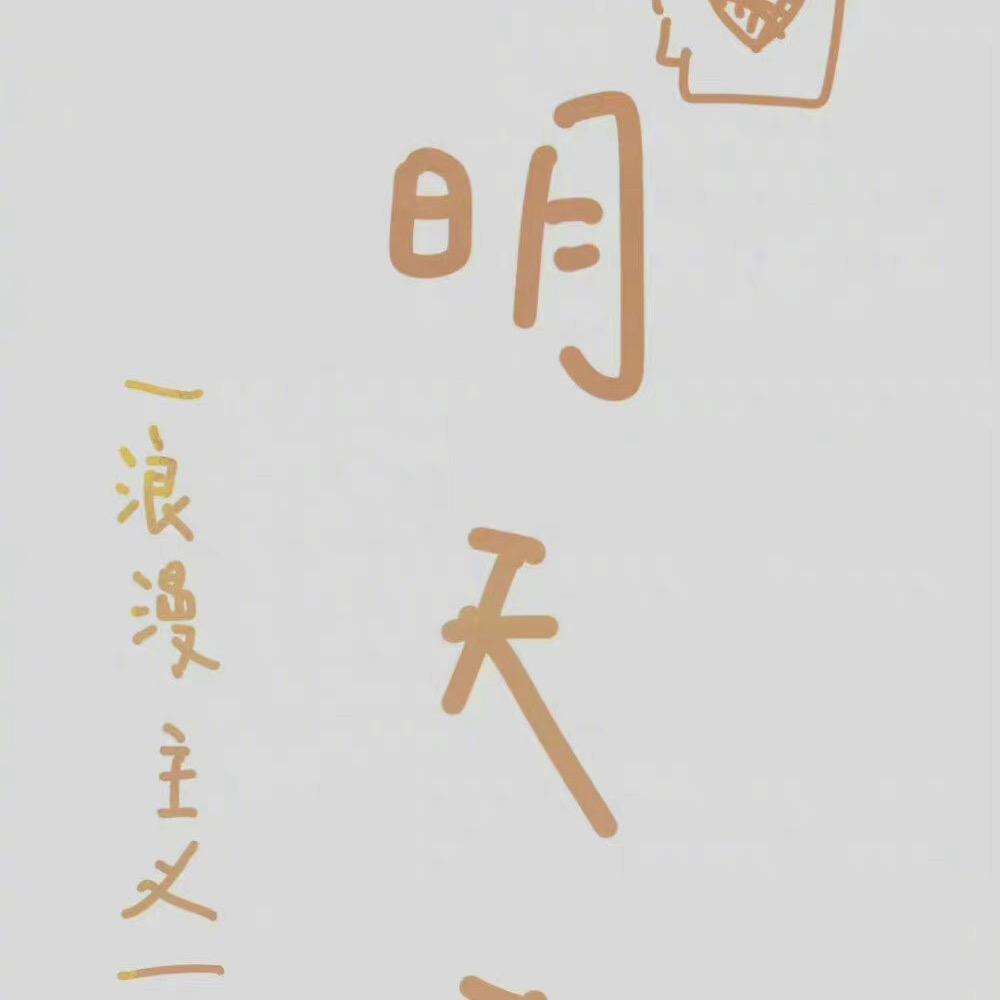 明天
浪漫主义